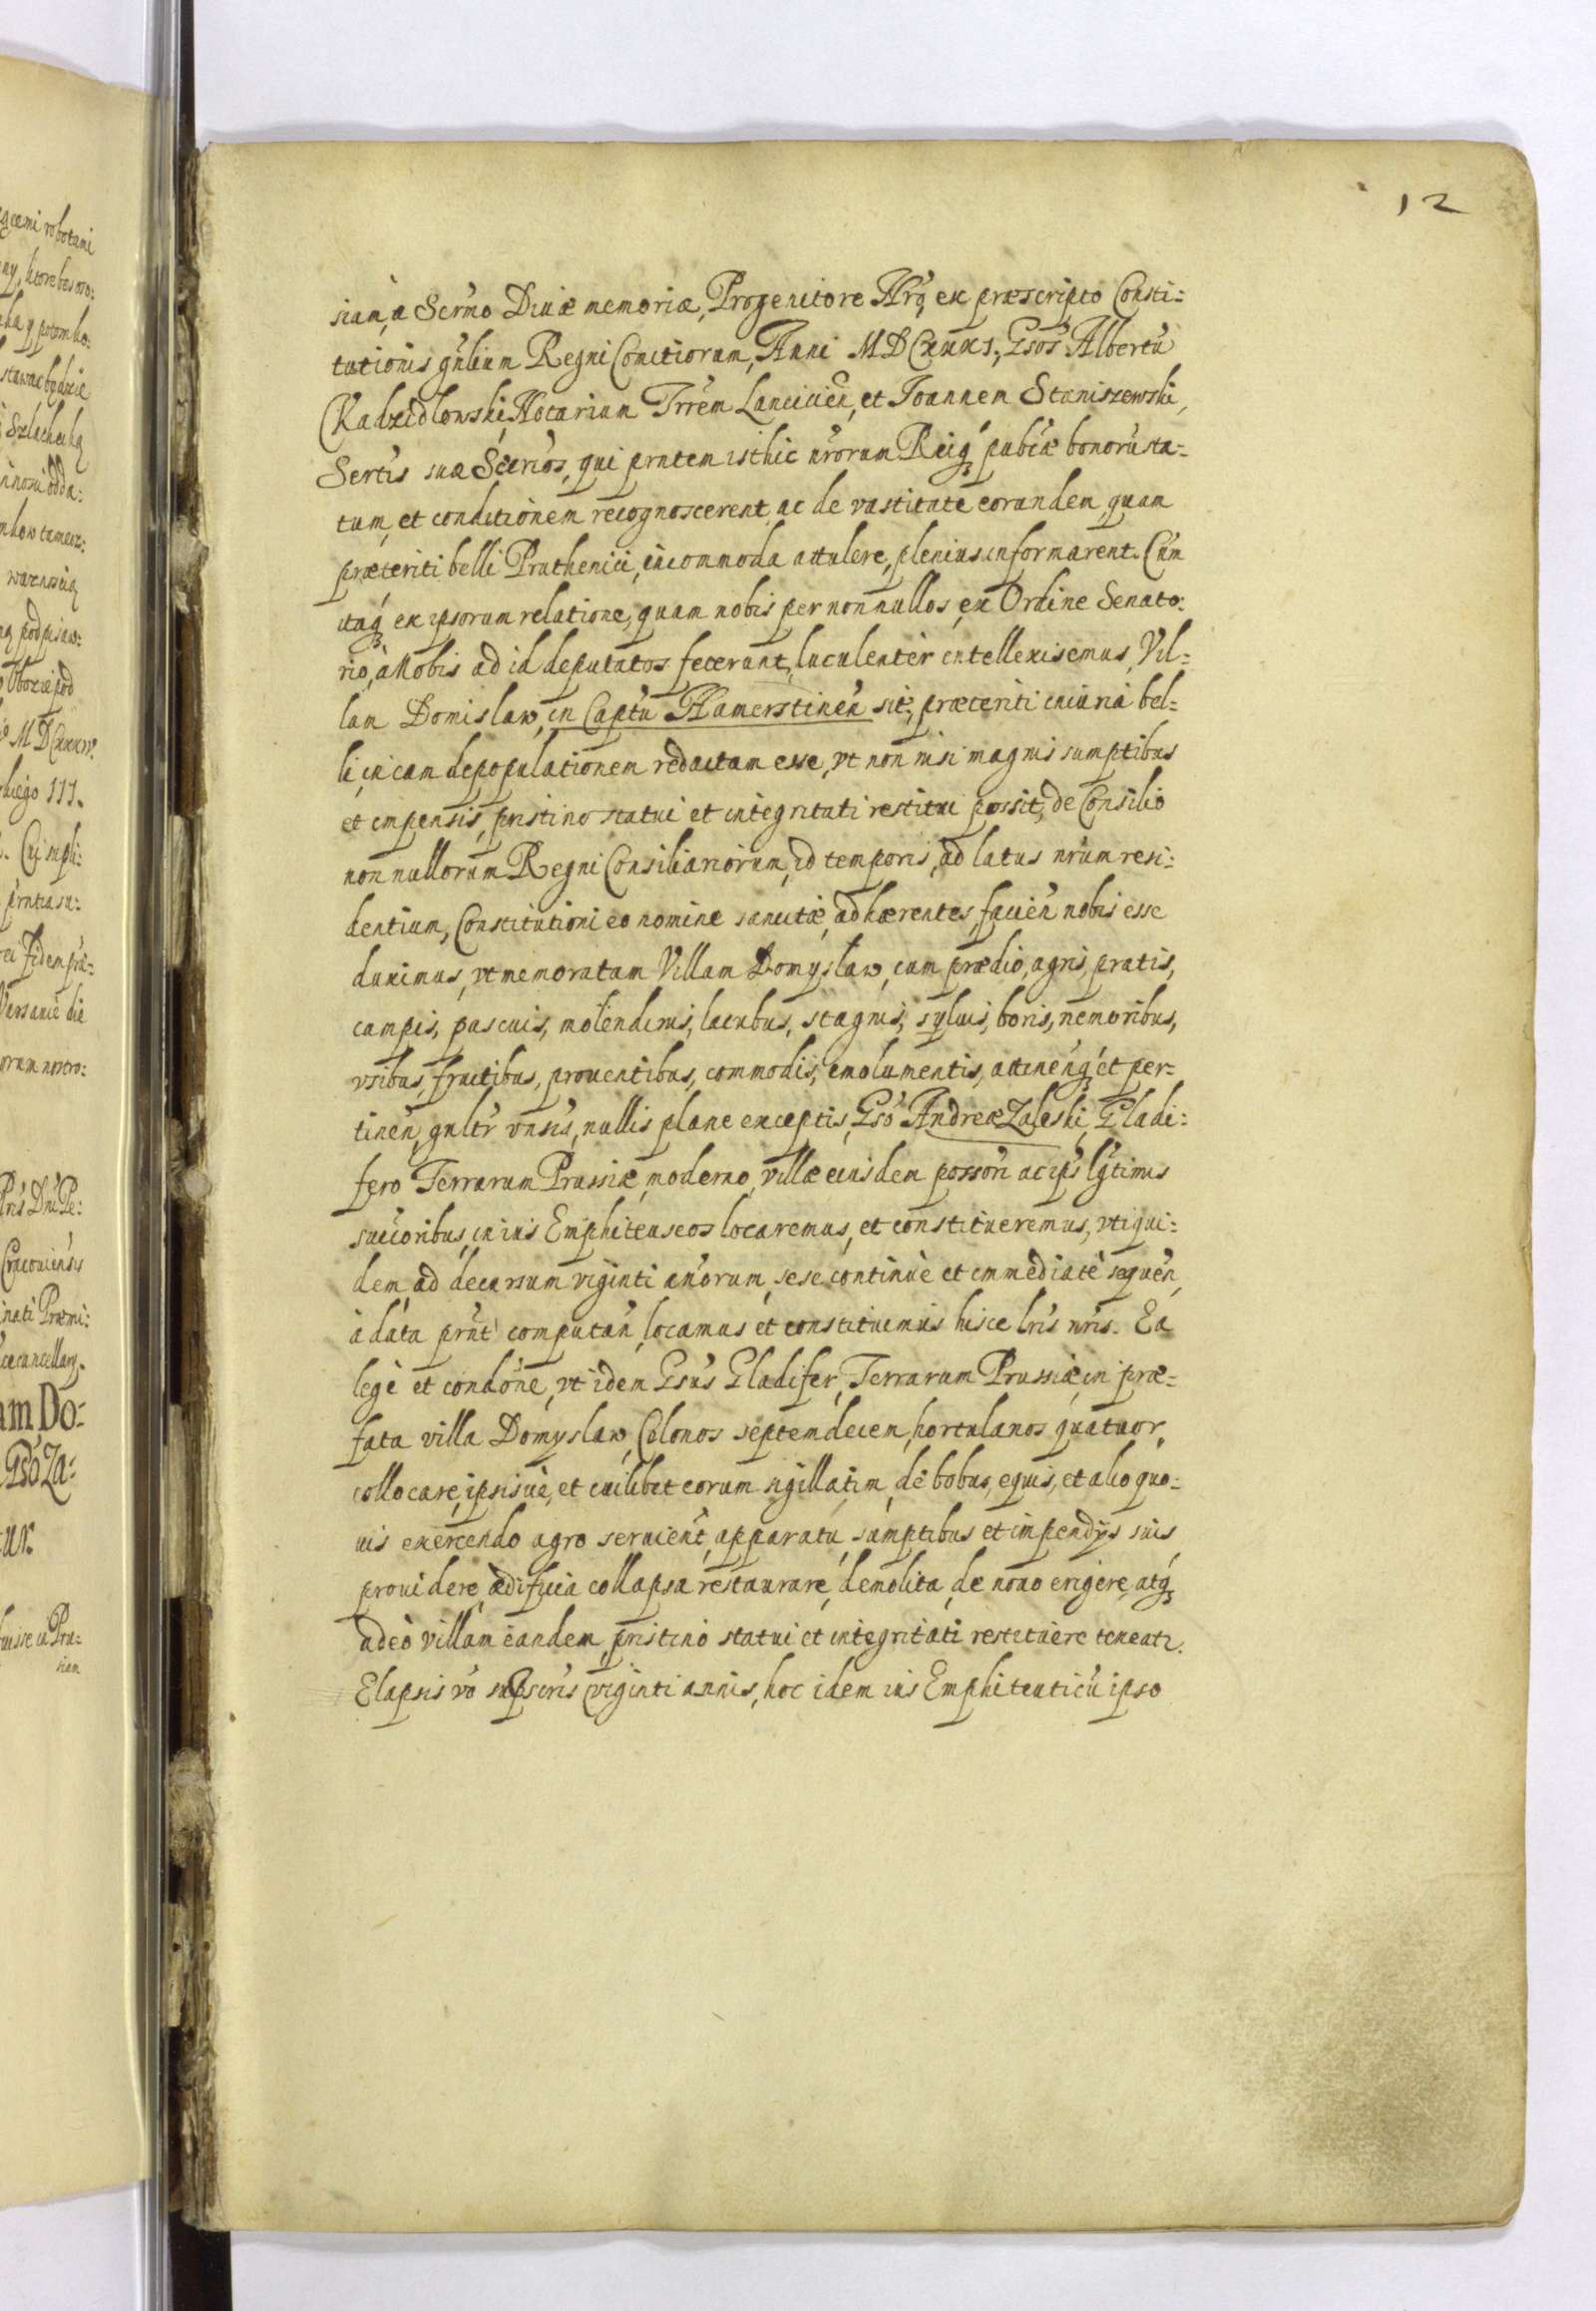 12
siam, a Sermo Diuæ memoriæ, Progenitore Nro, ex præscripto Consti=
tutionis gnlium Regni Comitiorum, Anni MDCXXXI, Gsos Albertu
Kadzidlowski, Notarium Trrem Lancicien, et Ioannem Staniszewski,
Sertis suæ Scrios, qui prntem isthic nrorum Reiq publcæ bonoru sta=
tum, et conditionem recognoscerent, ac de vastitate eorundem, quam
præteriti belli Pruthenici, incommoda attulere, plenius informarent. Cum
itaq ex ipsorum relatione, quam nobis per nonnullos, ex Ordine Senato:
rio, à Nobis ad id deputatos fecerunt, luculenter intellexissemus, Vil=
lam Domislaw, in Captu Hamerstinen sit, præteriti iniuria bel=
li, in eam depopulationem redactam esse, vt non nisi magnis sumptibus
et impensis, pristino statui et integritati restitui possit, de Consilio
non nullorum Regni Consiliariorum, id temporis, ad latus nrum resi=
dentium, Constitutioni eo nomine sancitæ, adhærentes, facien nobis esse
duximus, vt memoratam Villam Domyslaw, cum prædio, agris, pratis,
campis, pascuis, molendinis, lacubus, stagnis, syluis, boris, nemoribus,
vsibus, fructibus, prouentibus, commodis, emolumentis, attinenq et per=
tinen, gnltr vnsis, nullis plane exceptis, Gso Andreæ Zaleski, Gladi=
fero Terrarum Prussiæ, moderno, villæ eiusdem possori ac ips lgtimis
succoribus, in ius Emphiteuseos locaremus, et constitueremus, vti qui=
dem ad decursum viginti anorum, sese continuè et immediatè sequen,
à data prnt computan, locamus et constituimus hisce lris nris. Ea
lege et condone, vt idem Gsus Gladifer, Terrarum Prussiæ, in præ=
fata villa Domyslaw, Colonos septemdecem, hortulanos quatuor,
collocare, ipsisuè, et cuilibet eorum sigillatim, de bobus, equis, et alio quo=
uis exercendo agro seruient, apparatu, sumptibus et impendijs suis
prouidere, ædificia collapsa restaurare, demolita, de nouo erigere, atq
adeò villam eandem, pristino statui et integritati restituere teneatr.
Elapsis vo supscris viginti annis, hoc idem ius Emphiteuticu ipso